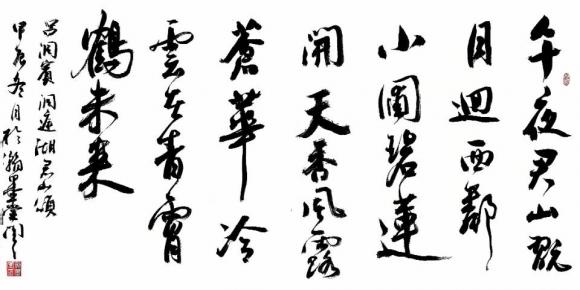 午夜君山翫
月迴西鄰
小圃碧蓮
開天香風露
蒼華冷
雲在青霄
鶴未来
吕洞賓洞庭湖君山頌
甲辰冬月於瀚墨堂